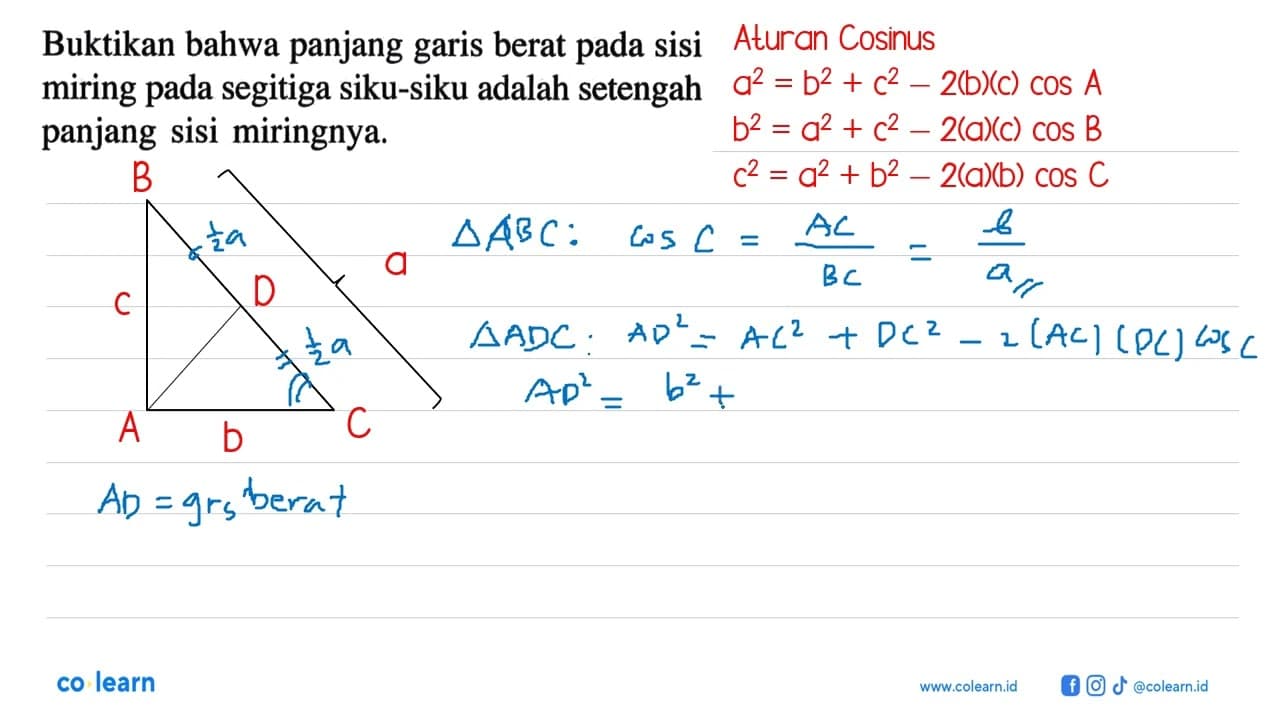 Buktikan bahwa panjang garis berat pada sisi
miring pada segitiga siku-siku adalah setengah
panjang sisi miringnya.
Aturan Cosinus
a² = b² + c² – 2(b)(c) cos A
b² = a² + c² – 2(a)(c) cos B
c² = a² + b² – 2(a)(b) cos C
B
½a
a
c
D
½a
A
b
C
AD = grs berat
△ABC: cos C = AC/BC = b/a
△ADC: AD² = AC² + DC² – 2(AC)(DC) cos C
AD² = b² +
co learn
www.colearn.id
@colearn.id